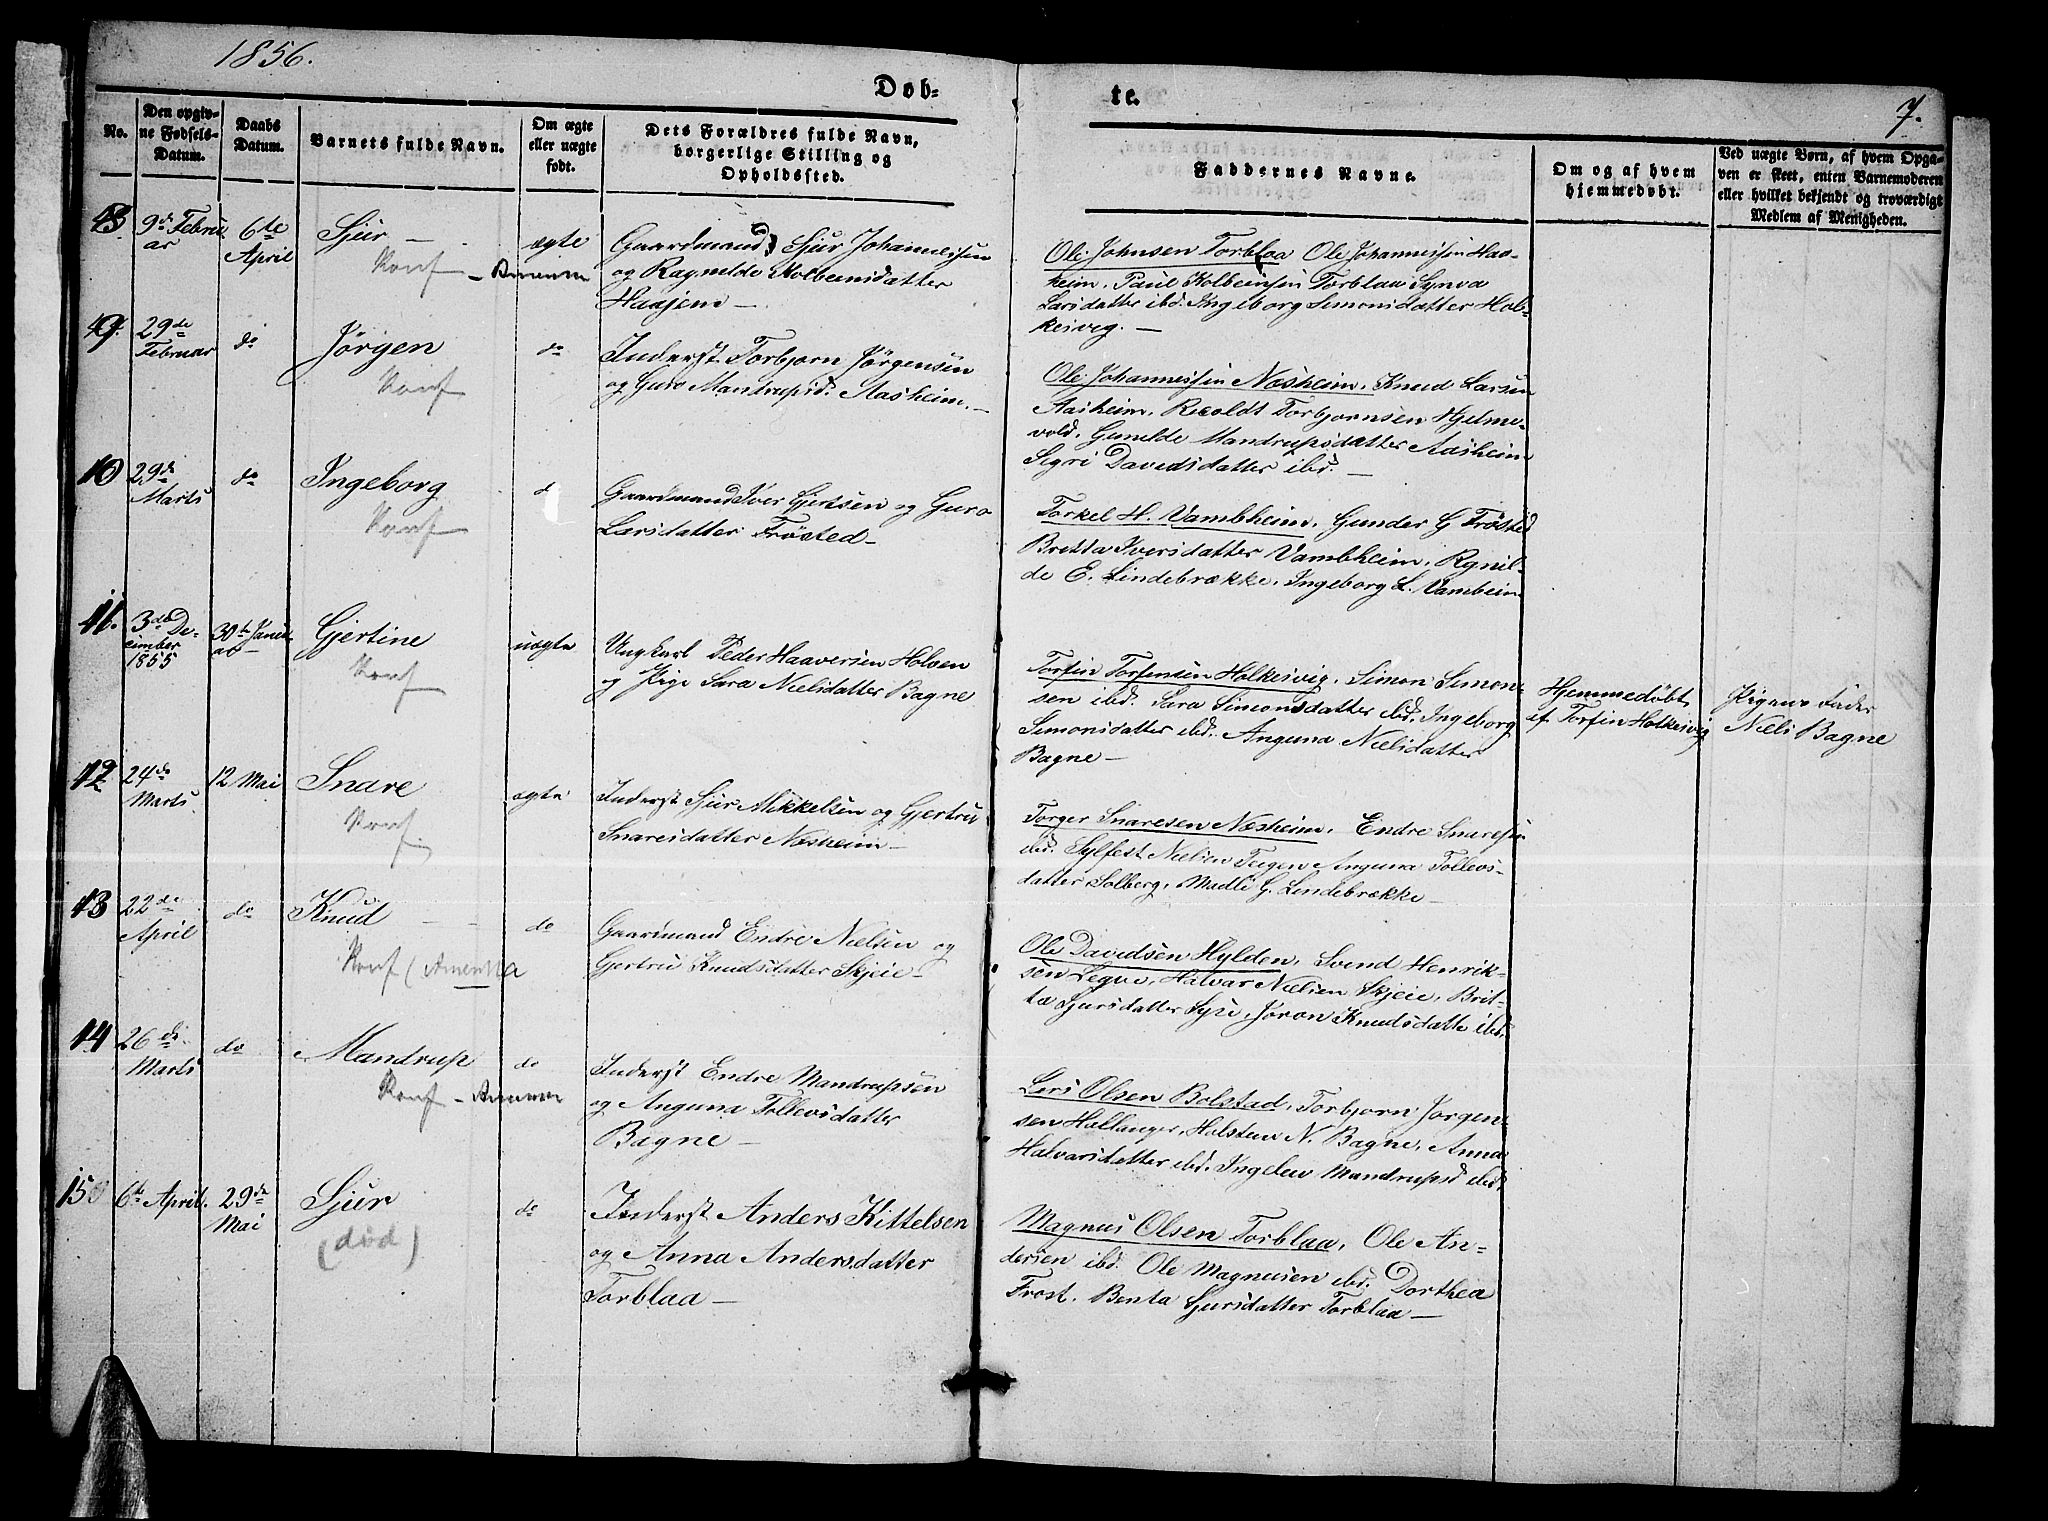 1856.
Døb-
te.
7.
No.
Den opgiv-
ne Fødsels-
Datum.
Daabs
Datum.
Barnets fulde Navn.
Om ægte
eller uægte
født.
Dets Forældres fulde Navn,
borgerlige Stilling og
Opholdssted.
Faddernes Navne.
Om og af hvem
hjemmedøbt.
Ved uægte Børn, af hvem Opga-
ven er skeet, enten Barnemoderen
eller hvilket bekjendt og troværdigt
Medlem af Menigheden.
9de Febru
ar
6te
April
Sjur
Konf
ægte
Gaardmand Sjur Johannessen
og Ragnilde Kolbeinsdatter
Haajem
Ole Johnsen Torblaa Ole Johannessen Haa-
heim. Paul Kolbeinsen Torblaa Synva
Larsdatter ibd. Ingeborg Simonsdatter Hol-
keivig.
29de
Februar
do
Jørgen
Konf
do
Inderst Torbjørn Jørgensen
og Guro Mandrupsd. Aasheim.
Ole Johannessen Næsheim. Knud Larsen
Aasheim. Torbjørnsen Hjelme-
vold. Gunilde Mandrupsdatter Aasheim
Sigri Davidsdatter ibd.
10
29de
Marts
do
Ingeborg
Konf
d
Gaardmand Iver Gjertsen og Guro
Larsdatter Frøsted
Torkel H. Vambheim. Gunder G Frøsted
Bretta Iversdatter Vambheim. Rgnil-
de E. Lindebrække. Ingeborg L. Vambeim
11.
3de De-
cember
1855
30te Janu-
ar
Gjertine
Konf
uægte
Ungkarl Peder Haaversen Holven
og Pige Sara Nielsdatter Bagne
Torfin Torfinsen Holkeivig. Simon Simon-
sen ibd. Sara Simonsdatter ibd. Ingeborg
Simonsdatter ibd. Anguna Nielsdatter
Bagne
Hjemmedøbt
af Torfin Holkeivig
Pigens Fader
Niels Bagne
12
24de
Marts
12 Mai
Snare
Konf
ægte
Inderst Sjur Mikkelsen og Gjertru
Snaresdatter Næsheim
Torger Snaresen Næsheim. Endre Snaresen
ibd. Sylfest Nielsen Teigen Anguna Tollevs-
datter Solberg, Madli G. Lindebrække
13
22de
April
do
Knud
Konf (Amerika
do
Gaardmand Endre Nielsen og
Gjertru Knudsdatter Skjeie
Ole Davidsen Hylden. Svend Henrik-
sen Legve, Halvar Nielsen Skjeie, Brit-
ta Sjursdatter Syse, Jøron Knudsdatte ibd.
14
26de
Marts
do
Mandrup
Konf
do
Inderst Endre Mandrupsen
og Anguna Tollevsdatter
Bagne
Lars Olsen Bolstad. Torbjørn Jørgen-
sen Hallanger, Holsten N. Bagne, Anna
Halvarsdatter ibd. Ingelev Mandrupsd ibd.
15
6te April.
29de
Mai
Sjur
(død)
do
Inderst Anders Kittelsen
og Anna Andersdatter
Torblaa
Magnus Olsen Torblaa, Ole An-
dersen ibd. Ole Magnusen ibd. Dorthea
Frost. Benta Sjursdatter Torblaa